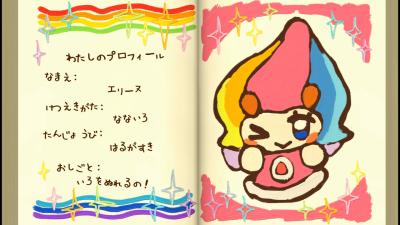 わたしのプロフィール
なまえ:
エリーヌ
けつえきがた:
なないろ
たんじょうび:
はるがすき
おしごと:
いろをぬれるの!